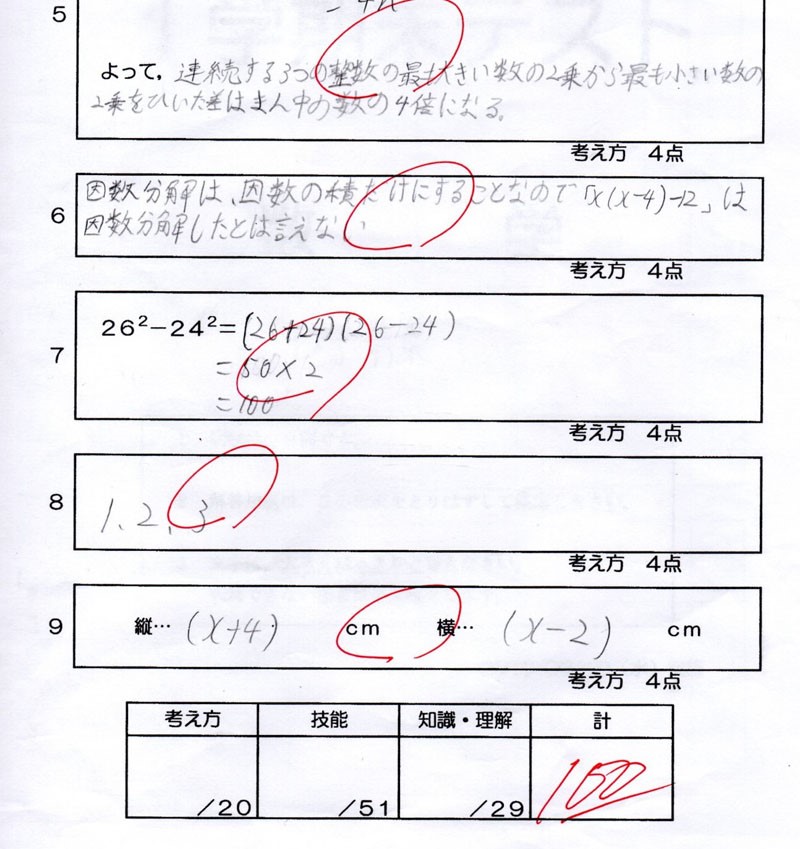 5
= 4n
よって，連続する3つの整数の最も大きい数の2乗から最も小さい数の
2乗をひいた差はまん中の数の4倍になる。
考え方　4点
6
因数分解は、因数の積だけにすることなので「x(x-4)-12」は
因数分解したとは言えない
考え方　4点
7
26²－24²＝(26+24)(26-24)
= 50×2
= 100
考え方　4点
8
1、2、3
考え方　4点
9
縦… (x+4) cm 横… (x-2) cm
考え方　4点
考え方 技能 知識・理解 計
/20 /51 /29 100